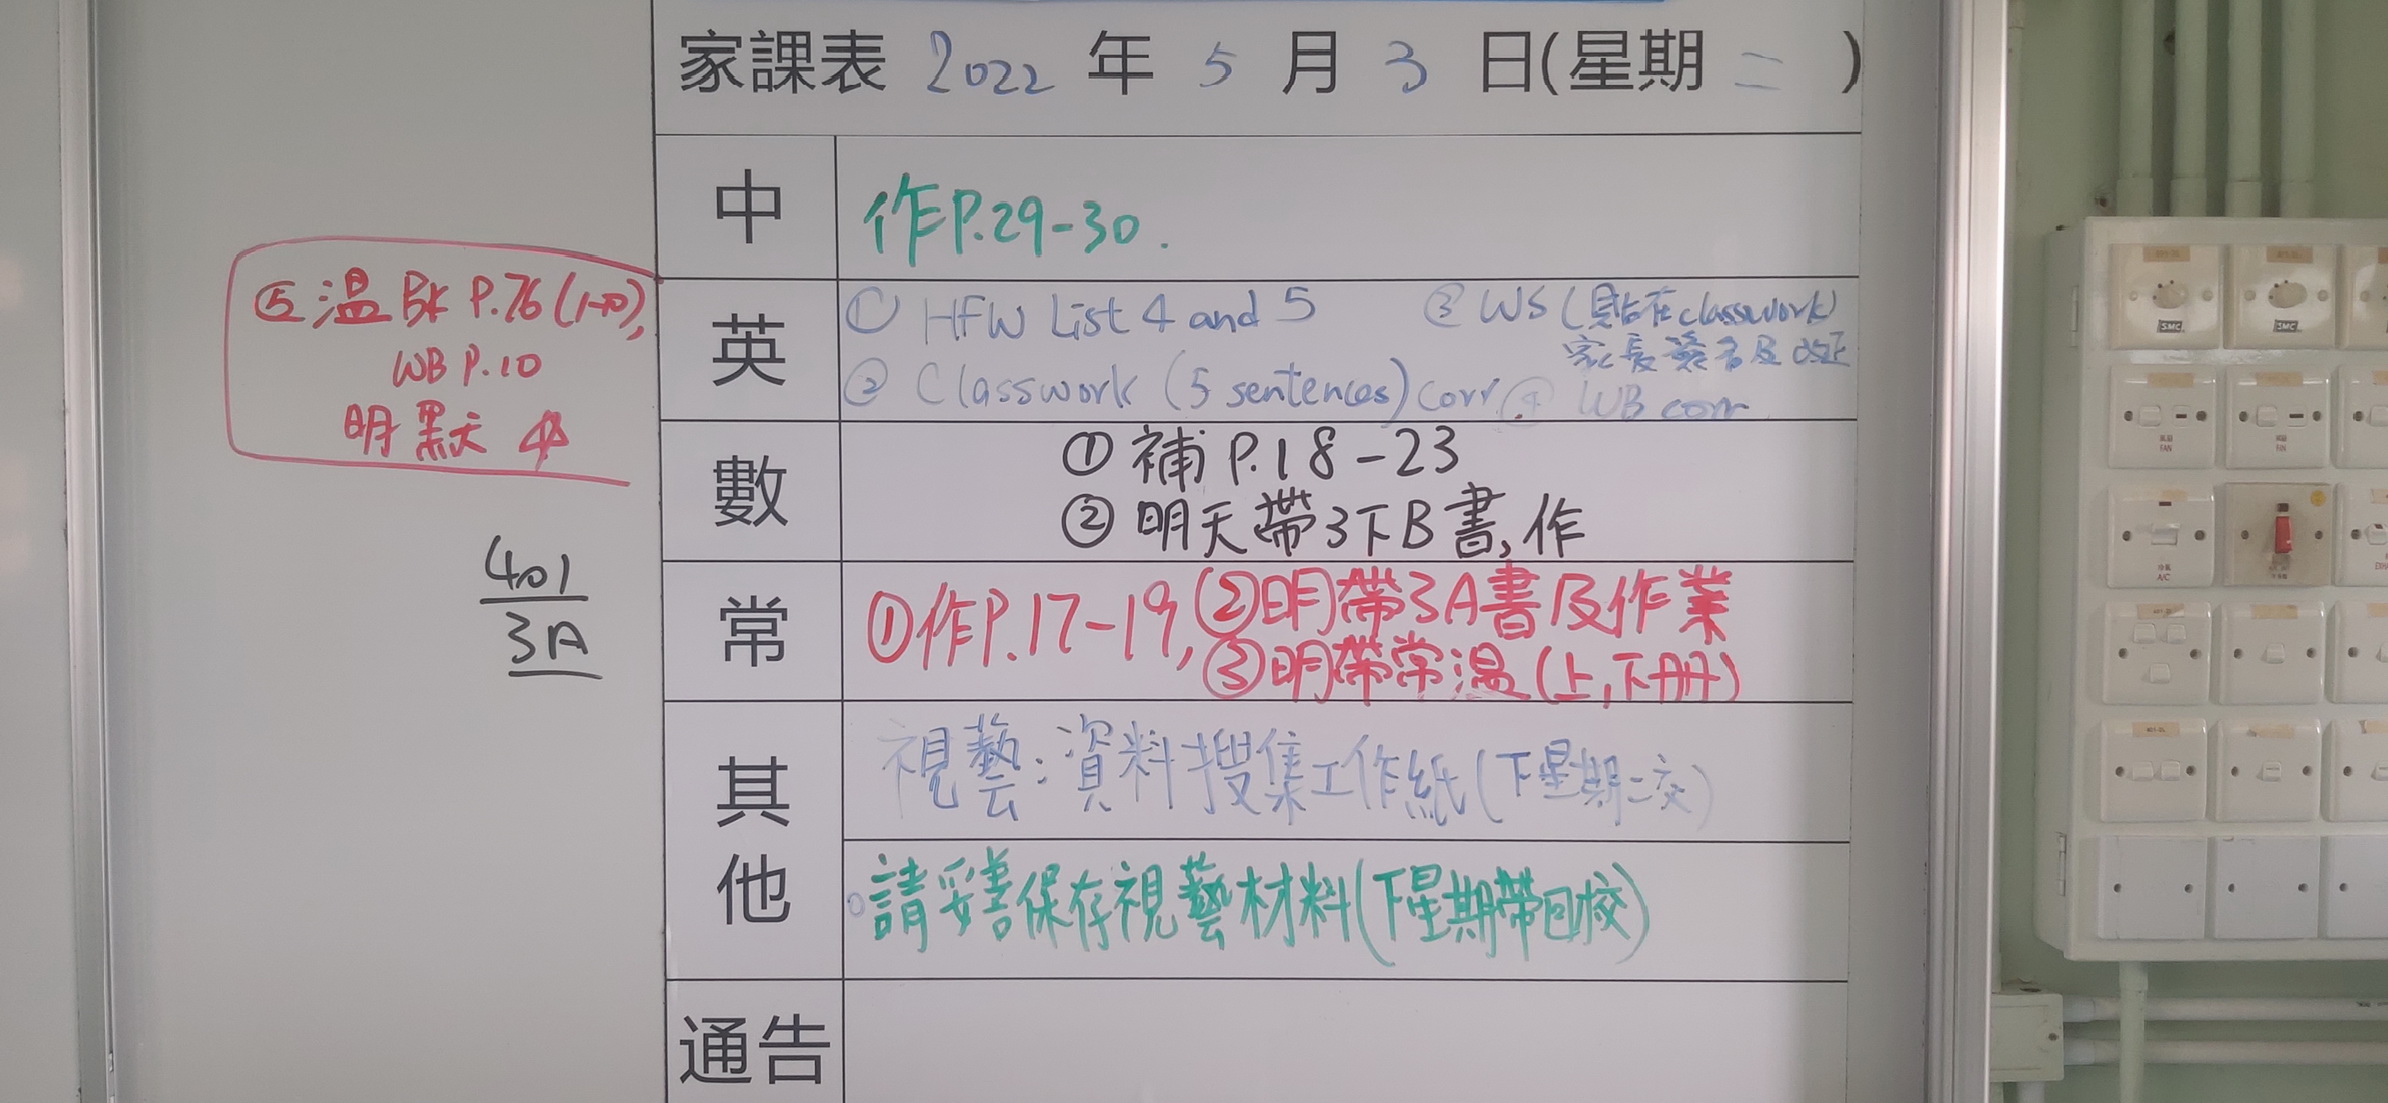 家課表 2022 年 5 月 3 日(星期 二 )
中
作P.29-30.
英
① HFW List 4 and 5
③ WS (貼在classwork)
家長簽名及改正
② Classwork (5 sentences) corr
④ WB corr
⑤ 温 Bk P.76 (1-10),
WB P.10
明默
數
① 補 P.18-23
② 明天帶3下B書,作
401
3A
常
①作P.17-19, ②明帶3A書及作業
③明帶常温(上,下册)
其他
視藝:資料搜集工作紙(下星期二交)
請妥善保存視藝材料(下星期帶回校)
通告
SMC
SMC
FAN
FAN
A/C